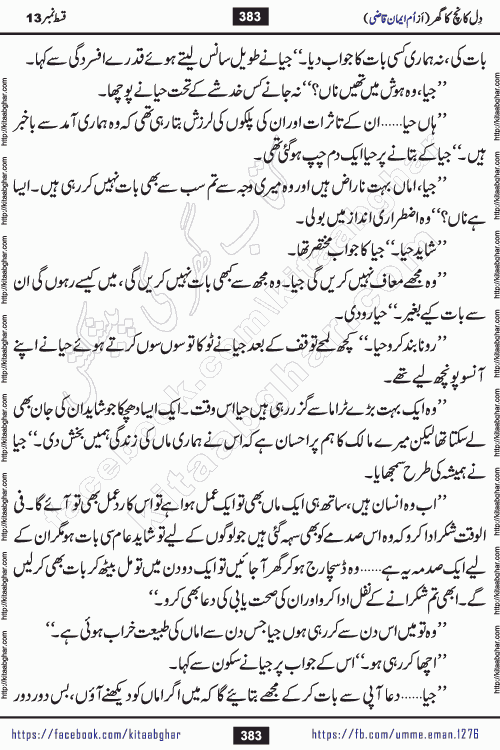 دِل کانچ کا گھر (از اُم ایمان قاضی) 383 قسط نمبر 13
بات کی، نہ ہماری کسی بات کا جواب دیا۔‘‘ جیا نے طویل سانس لیتے ہوئے قدرے افسردگی سے کہا۔
’’جیا، وہ ہوش میں تھیں ناں؟‘‘ نہ جانے کس خدشے کے تحت حیا نے پوچھا۔
’’ہاں حیا......ان کے تاثرات اور ان کی پلکوں کی لرزش بتا رہی تھی کہ وہ ہماری آمد سے باخبر
ہیں۔‘‘ جیا کے بتانے پر حیا ایک دم چپ ہو گئی تھی۔
’’جیا، اماں بہت ناراض ہیں اور وہ میری وجہ سے تم سب سے بھی بات نہیں کر رہی ہیں۔ ایسا
ہے ناں؟‘‘ وہ اضطراری انداز میں بولی۔
’’شاید حیا۔‘‘ جیا کا جواب مختصر تھا۔
’’وہ مجھے معاف نہیں کریں گی جیا۔ وہ مجھ سے کبھی بات نہیں کریں گی، میں کیسے رہوں گی ان
سے بات کیے بغیر۔‘‘ حیا رو دی۔
’’رونا بند کرو حیا۔‘‘ کچھ لمحے توقف کے بعد جیا نے ٹوکا تو سوں سوں کرتے ہوئے حیا نے اپنے
آنسو پونچھ لیے تھے۔
’’وہ ایک بہت بڑے ٹراما سے گزر رہی ہیں حیا اس وقت۔ ایک ایسا دھچکا جو شاید ان کی جان بھی
لے سکتا تھا لیکن میرے مالک کا ہم پر احسان ہے کہ اس نے ہماری ماں کی زندگی ہمیں بخش دی۔‘‘ جیا
نے ہمیشہ کی طرح سمجھایا۔
’’اب وہ انسان ہیں، ساتھ ہی ایک ماں بھی تو ایک عمل ہوا ہے تو اس کا ردعمل بھی تو آئے گا۔ فی
الوقت شکر ادا کرو کہ وہ اس صدمے کو بھی سہہ گئی ہیں جو لوگوں کے لیے تو شاید عام سی بات ہو مگر ان کے
لیے ایک صدمہ یہ ہے......وہ ڈسچارج ہو کر گھر آ جائیں تو ایک دو دن میں تو مل بیٹھ کر بات بھی کر لیں
گے۔ ابھی تم شکرانے کے نفل ادا کرو اور ان کی صحت یابی کی دعا بھی کرو۔‘‘
’’وہ تو میں اس دن سے کر رہی ہوں جیا جس دن سے اماں کی طبیعت خراب ہوئی ہے۔‘‘
’’اچھا کر رہی ہو۔‘‘ اس کے جواب پر جیا نے سکون سے کہا۔
’’جیا......دعا آپی سے بات کر کے مجھے بتائیے گا کہ میں اگر اماں کو دیکھنے آؤں، بس دور دور
https://facebook.com/kitaabghar 383 https://fb.com/umme.eman.1276
http://kitaabghar.com
کتاب گھر کی پیشکش
facebook.com/kitaabghar
kitaabghar.com